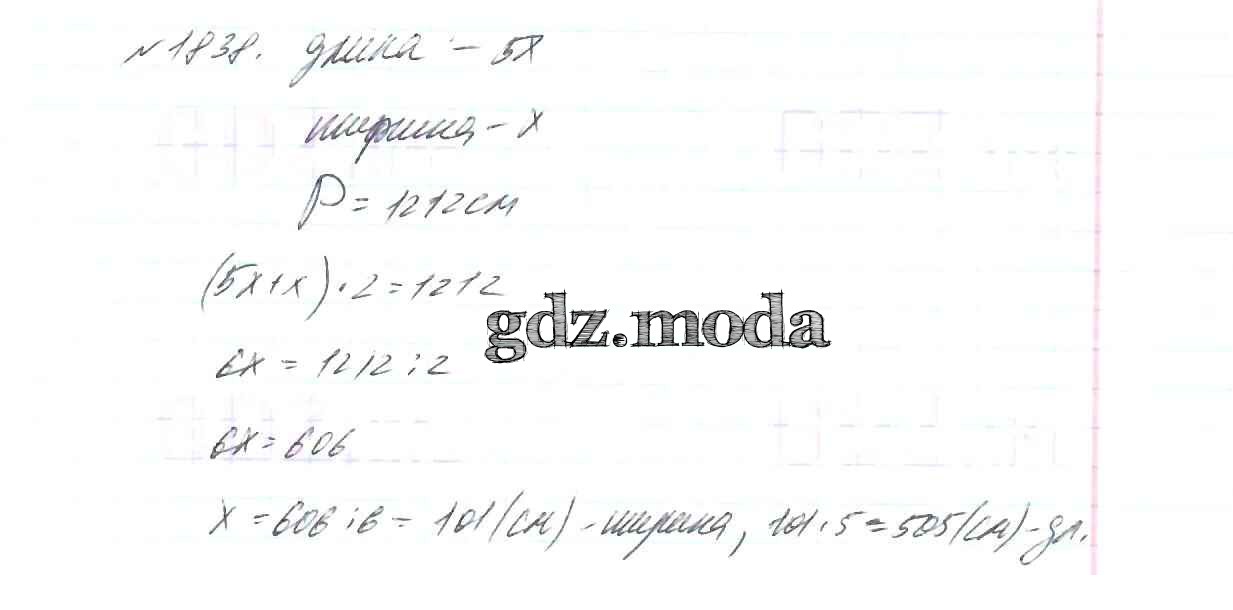 № 1838. длина – 5x
ширина – x
P = 1212 см
(5x+x) · 2 = 1212
gdz.moda
6x = 1212 : 2
6x = 606
x = 606 : 6 = 101 (см) – ширина, 101 · 5 = 505 (см) – дл.